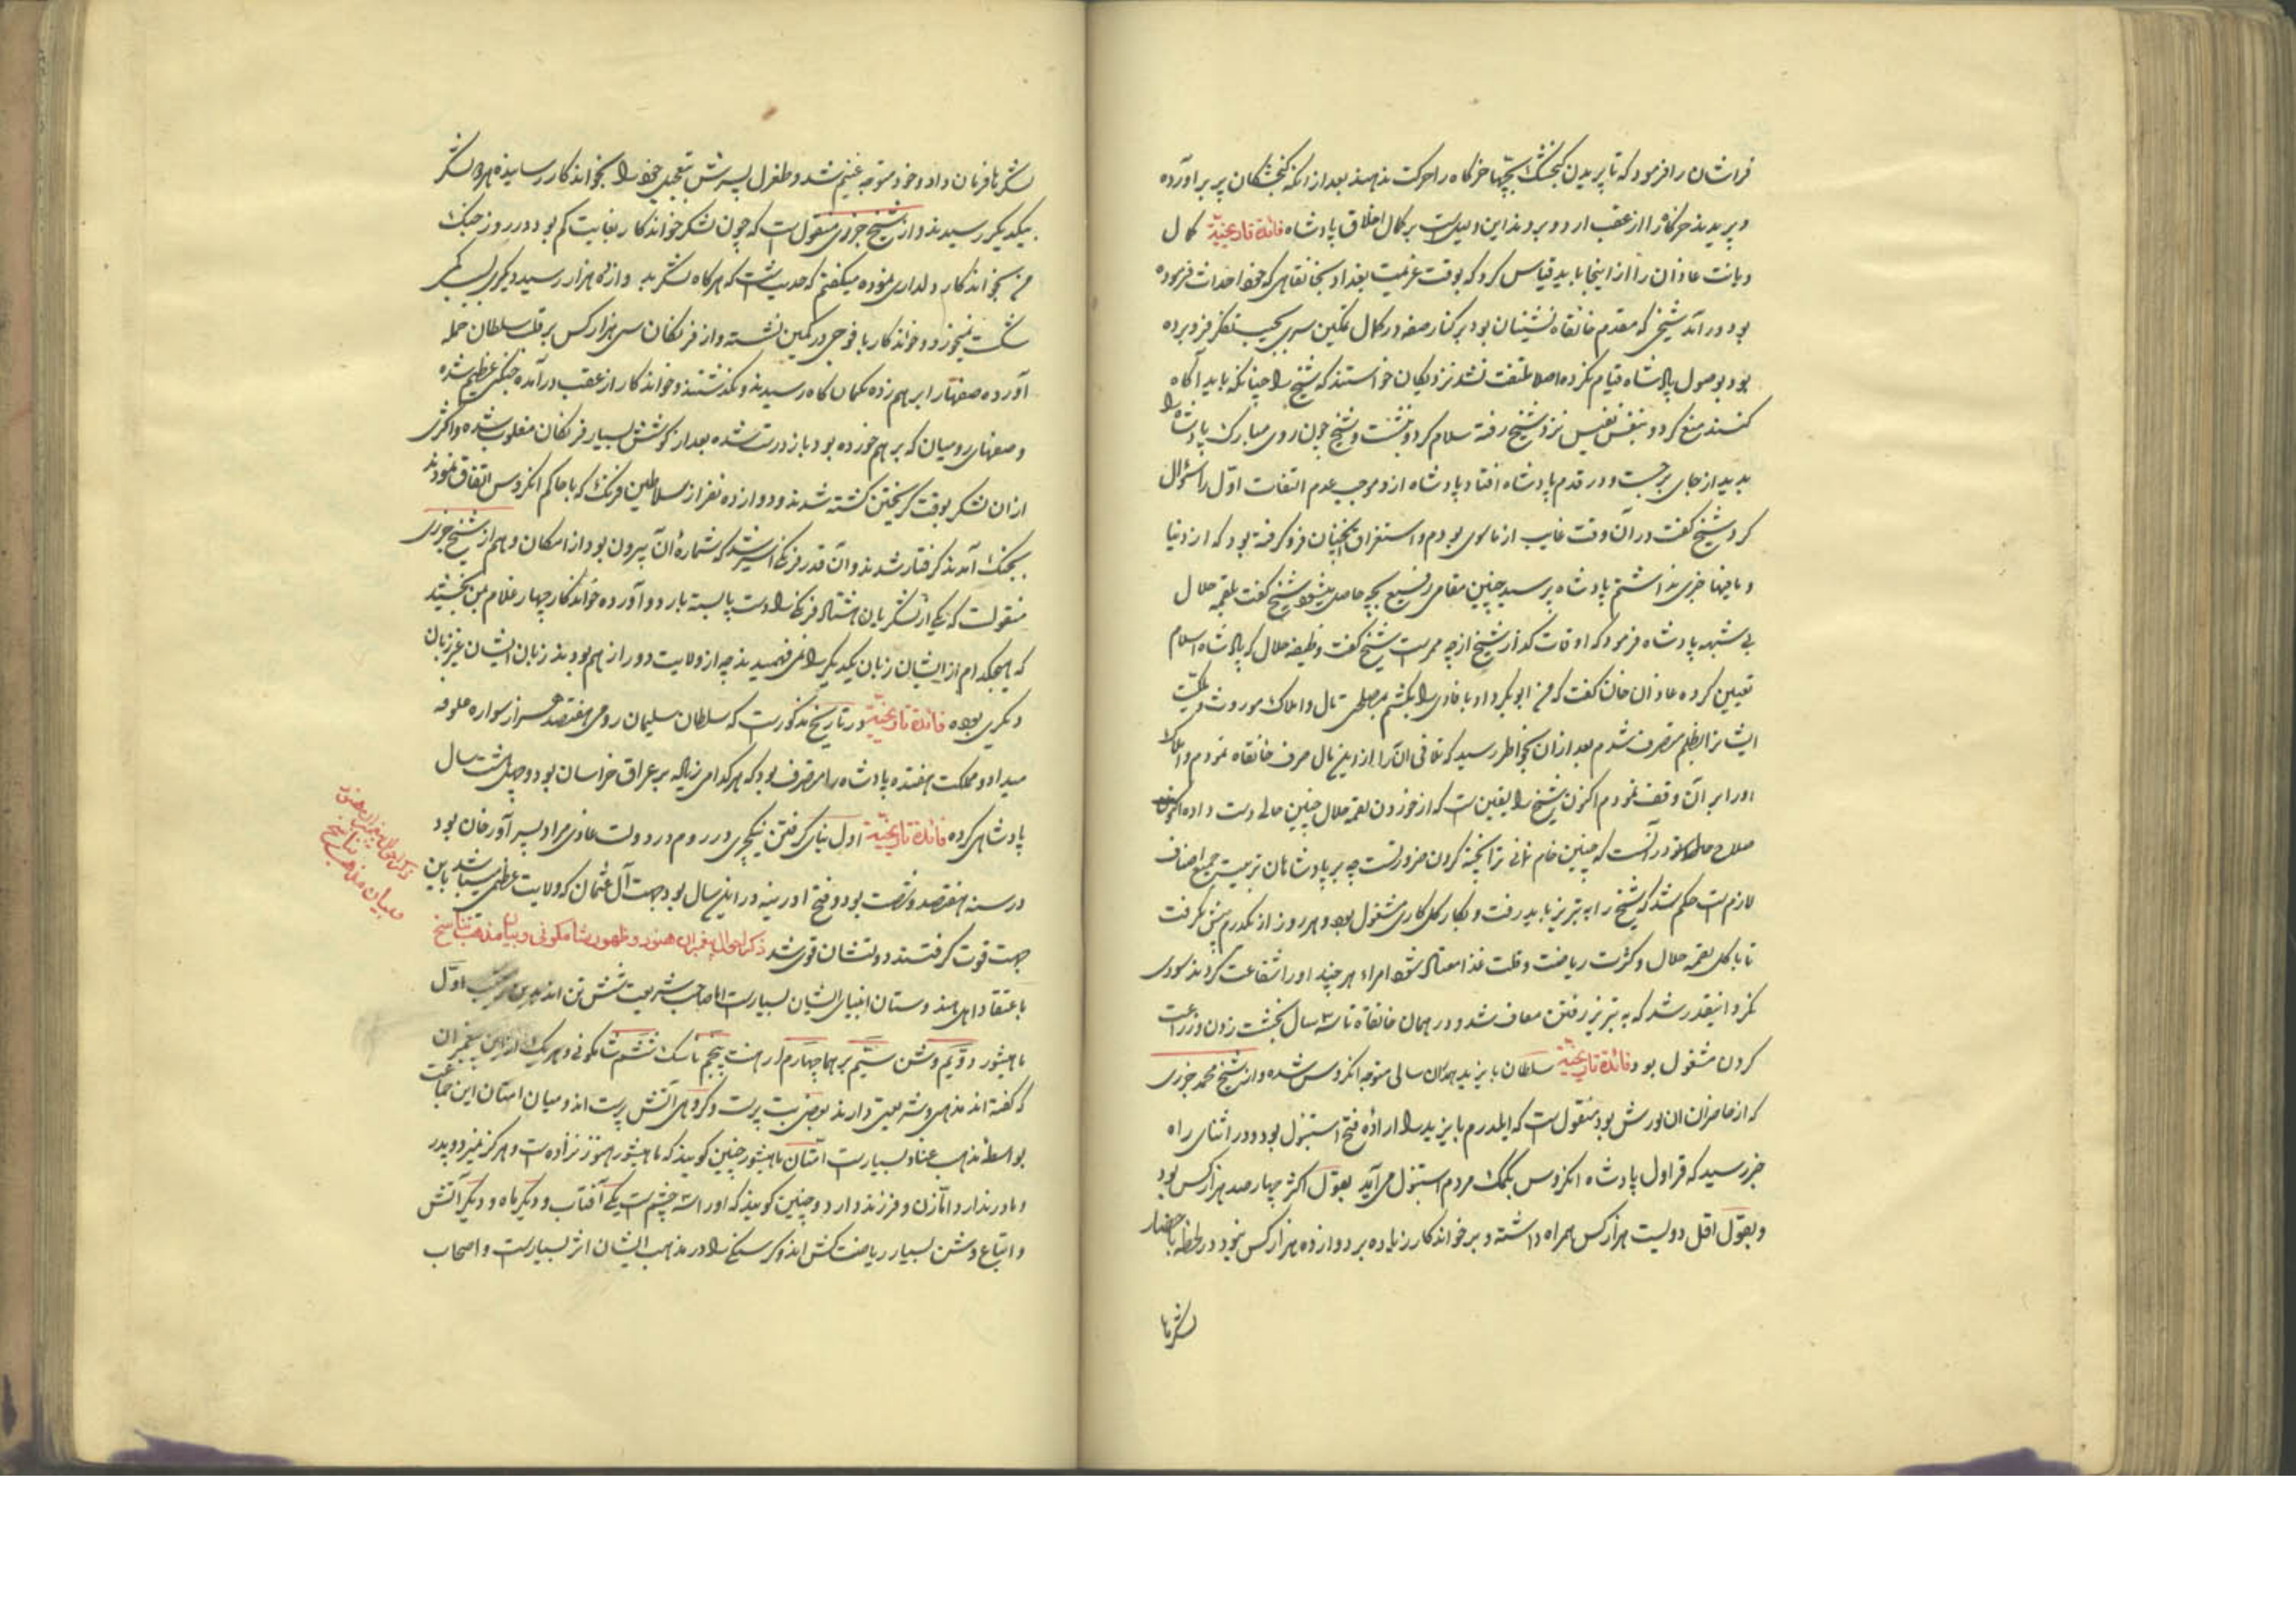 فراشان را فرمود که تا پریدن گنجشک بچها خرگاه را حرکت ندهند بعد از آنکه گنجشکان پر برآورده
و پریدند خرگاه را از عقب اردو بردند این دلیلست بر کمال اخلاق پادشاه فائدة تاریخیّة کمال
دیانت غازان را از اینجا باید قیاس کرد که بوقت عزیمت بغداد بخانقاهی که خود احداث فرموده
بود در آمد شیخی که مقدم خانقاه نشینان بود بر کنار صفه در کمال تمکین سر بجیب تفکر فرو برده
بود بوصول پادشاه قیام نکرده اصلا ملتفت نشد نزدیکان خواستند که شیخ را چنانکه باید آگاه
کنند منع کرد و بنفس نفیس نزد شیخ رفته سلام کرد و بنشست و شیخ چون روی مبارک پادشاه را
بدید از جای برجست و در قدم پادشاه افتاد پادشاه ازو موجب عدم التفات اوّل را سؤال
کرد شیخ گفت در آن وقت غایب از ماسوی بودم و استغراق آنچنان فرو گرفته بود که از دنیا
و مافیها خبری نداشتم پادشاه پرسید چنین مقامی رفیع بچه حاصل میشود شیخ گفت بلقمه حلال
بی شبهه پادشاه فرمود که اوقات گذار شیخ از چه ممرست شیخ گفت وظیفه حلال که پادشاه اسلام
تعیین کرده غازان خان گفت که من ابوبکر داد بافادی را بکشتم بمصلحتی مال و املاک موروث و مکتسب
ایشانرا بظلم متصرف شدم بعد از آن بخاطر رسید که تلافی آن را ازین مال صرف خانقاه نمودم و املاک
او را بر آن وقف نمودم اکنون شیخ را یقین است که از خوردن لقمه حلال چنین حالی دست داده اکنون
صلاح حال او در آنست که چنین خام نانی را پخته کردن ضرورتست چه بر پادشاهان تربیت جمیع اصناف
لازمست حکم شد که شیخ را به تبریز باید رفت و بکار گل کاری مشغول بود و هر روز از یکدرم بیش نگرفت
تا باکل لقمه حلال و کثرت ریاضت و قلت غذا معتاد شود امراء هر چند او را شفاعت کردند سودی
نکرد اینقدر شد که به تبریز رفتن معاف شد و در همان خانقاه تا سه سال بخشت زدن و زراعت
کردن مشغول بود فائدة تاریخیّة سلطان بایزید همدان سالی متوجه انکروس شده و از شیخ محمد جزری
که از حاضران آن یورش بود منقولست که ایلدرم بایزید را ارادهٔ فتح استنبول بود و در اثنای راه
خبر رسید که قراول پادشاه انکروس بکمک مردم استنبول می آید بقول اکثر چهار صد هزار کس بود
و بقول اقل دویست هزار کس همراه داشته و بر خواندکار زیاده بر دوازده هزار کس نبود در لحظه باحضار
لشکرها
لشکرها فرمان داد و خود متوجه غنیم شد و طغرل پسرش بتعجیل خود را بخواندکار رسانیده هر دو لشکر
بیکدیگر رسیدند و از شیخ جزری منقولست که چون لشکر خواندکار بغایت کم بود در روز جنگ
من بخواندکار دلداری نموده میگفتم که حدیثست که هرگاه لشکر به دوازده هزار رسید دیگر بسبب کمی
شکست نمیخورد و خواندکار با فوجی در کمین نشسته و از فرنگان سی هزار کس بر قلب سلطان حمله
آورده صفها را برهم زده بکمان گاه رسیدند و گذشتند و خواندکار از عقب در آمده جنگی عظیم شده
و صفهای رومیان که بر هم خورده بود باز درست شده بعد از کوشش بسیار فرنگان مغلوب شده و اکثری
ازان لشکر بوقت گریختن کشته شدند و دوازده نفر از سلاطین فرنگ که با حاکم انکروس اتفاق نموده
بجنگ آمدند گرفتار شدند و آن قدر فرنگی اسیر شد که شمارهٔ آن بیرون بود از امکان و هم از شیخ جزری
منقولست که یکی از لشکریان هشتاد فرنگی را دست و پا بسته باردو آورده خواندکار چهار غلام بمن بخشید
که هیچکدام از ایشان زبان یکدیگر را نمی فهمیدند چه از ولایت دور از هم بودند زبان ایشان غیر زبان
دیگری بوده فائدة تاریخیّة در تاریخ مذکورست که سلطان سلیمان رومی هفتصد هزار سواره علوفه
میداد و مملکت هفده پادشاه را متصرف بود که هر کدامی زیاده بر عراق خراسان بود و چهل و هشت سال
پادشاهی کرده فائدة تاریخیّة اول بنای گرفتن ینکچری در روم در دولت غازی مراد پسر آورخان بود
در سنه هفتصد و شصت بود و فتح ادرنه در این سال بود جهت آل عثمان که ولایت عظمی میباشد باین
جهت قوت گرفتند دولتشان قوی شد ذکر احوال پیغمبران هنود و ظهور شاکمونی و بیان مذهب تناسخ
باعتقاد اهل هندوستان انبیای ایشان بسیارست اما صاحب شریعت شش تن اند اوّل
ماهیشور دوّیم وشن سیّم برهما چهارم ارهنت پنجم ناسک ششم شاکمونی و هر یک ازین پیغمبران
که گفته اند مذهبی و شریعتی دارند بعضی بت پرست و گروهی آتش پرست اند و میان امتان این جماعت
بواسطه مذهب عناد بسیارست امتان ماهیشور چنین گویند که ماهیشور هنوز نزاده است و هرگز نمیرد و پدر
و مادر ندارد امّا زن و فرزند دارد و چنین گویند که او را سه چشم است یکی آفتاب و دیگر ماه و دیگر آتش
و اتباع وشن بسیار ریاضت کش اند و گرسنگی را در مذهب ایشان اثر بسیارست و اصحاب
ذکر احوال پیغمبران هنود
و بیان مذهب تناسخ